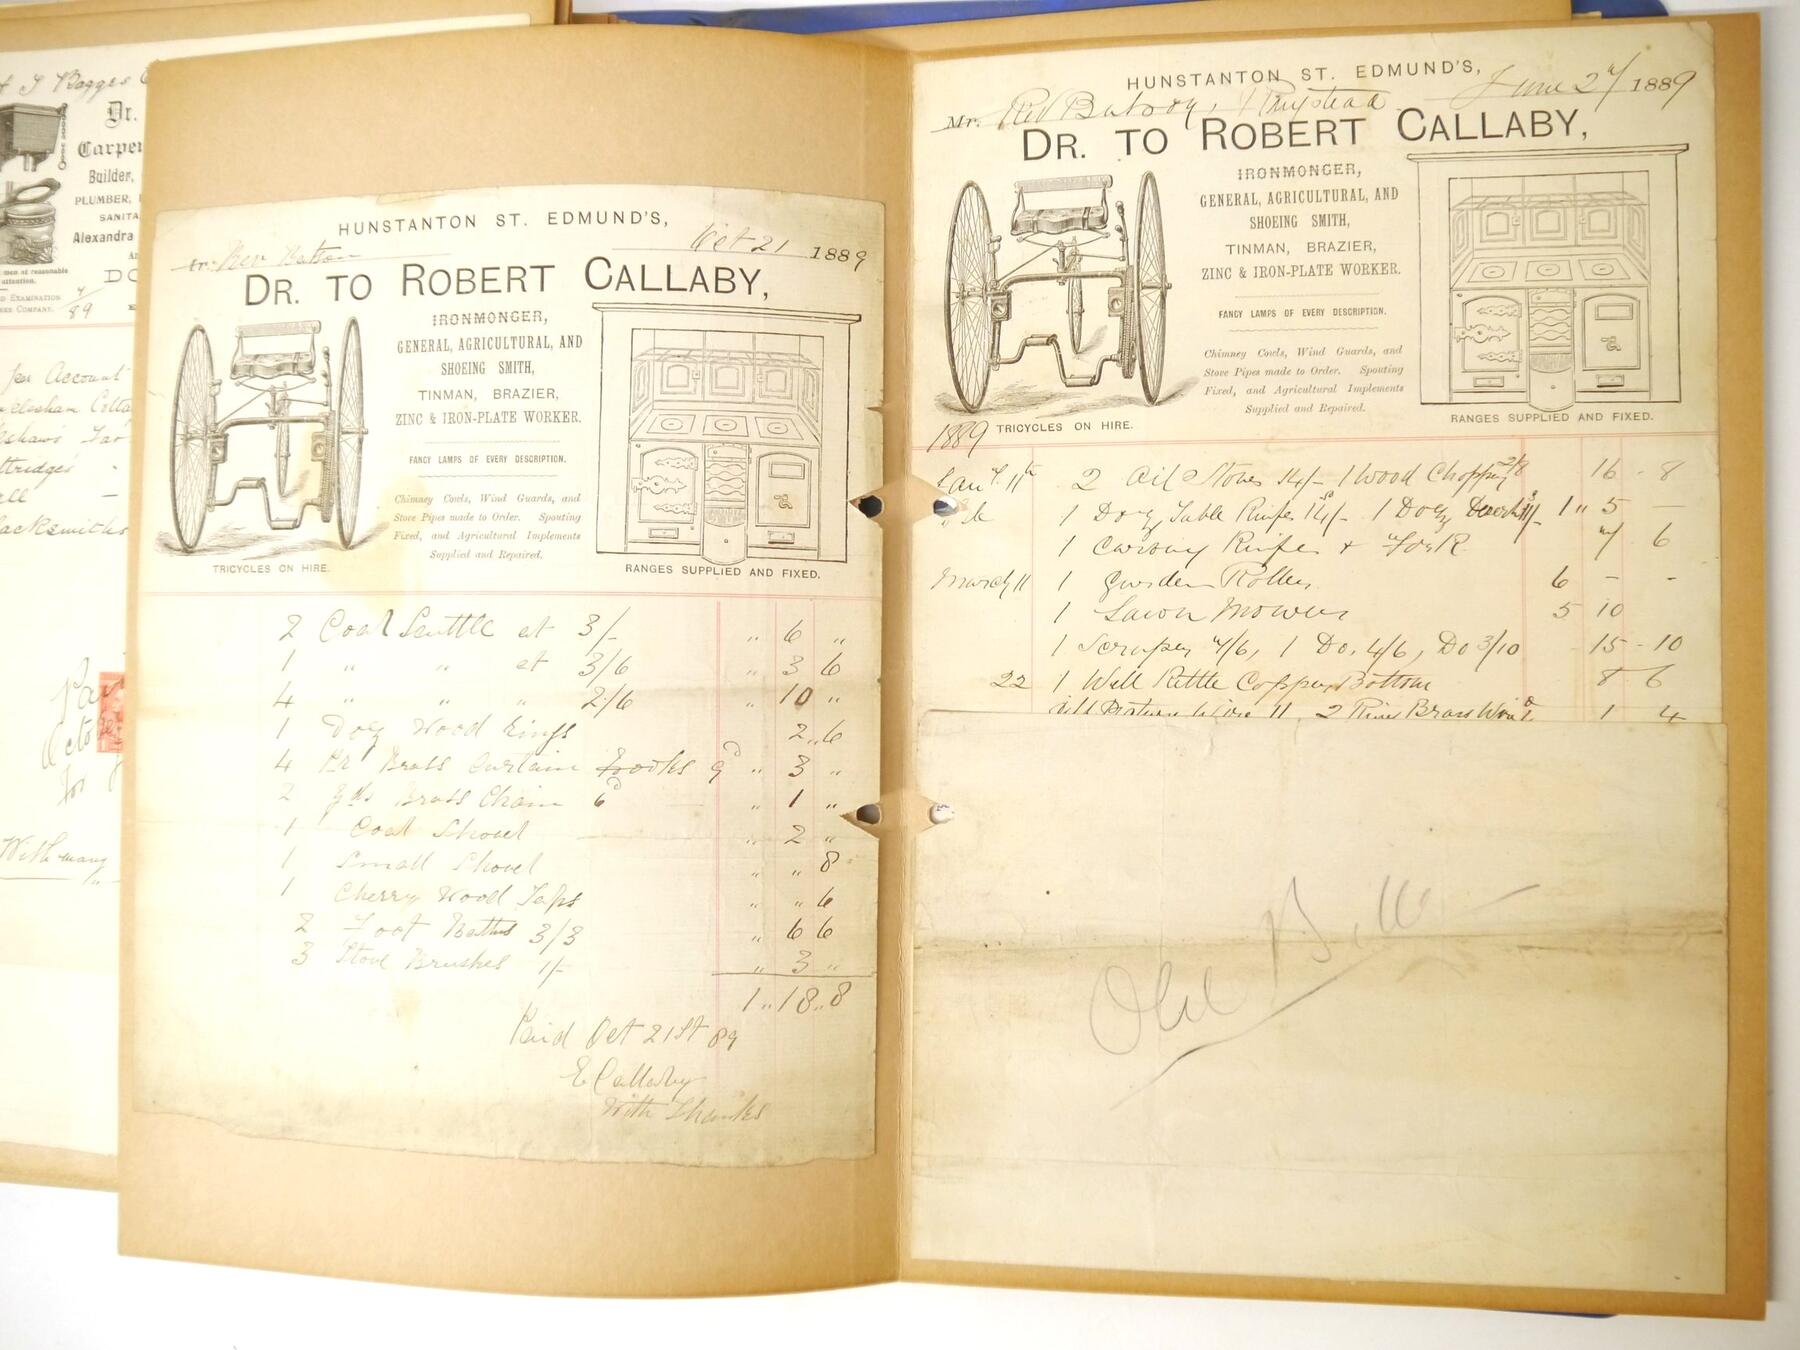 Dr.
Carpe
Builder,
PLUMBER,
SANITA
Alexandra
men at reasonable
attention.
DO
D EXAMINATION
89
per Account
Blacksmiths
With many
HUNSTANTON ST. EDMUND'S,
Oct 21 1889
Rev Batson
DR. TO ROBERT CALLABY,
IRONMONGER,
GENERAL, AGRICULTURAL, AND
SHOEING SMITH,
TINMAN, BRAZIER,
ZINC & IRON-PLATE WORKER.
FANCY LAMPS OF EVERY DESCRIPTION.
Chimney Cowls, Wind Guards, and
Stove Pipes made to Order. Spouting
Fixed, and Agricultural Implements
Supplied and Repaired.
TRICYCLES ON HIRE.
RANGES SUPPLIED AND FIXED.
2 Coal Scuttle at 3/- " 6 "
1 " " at 3/6 " 3 6
4 " " " 2/6 " 10 "
1 Doz Wood Rings 2 " 6
4 Pr Brass Curtain Hooks 9d " 3 "
2 Yds Brass Chain 6d " 1 "
1 Coal Shovel " 2 "
1 Small Shovel " " 8
1 Cherry Wood Taps " " 6
2 Foot Baths 3/3 " 6 6
3 Stove Brushes 1/- " 3 "
1 " 18 " 8
Paid Oct 21st 89
E Callaby
With Thanks
HUNSTANTON ST. EDMUND'S, June 2 1889
Mr. Rev Batson,
DR. TO ROBERT CALLABY,
IRONMONGER,
GENERAL, AGRICULTURAL, AND
SHOEING SMITH,
TINMAN, BRAZIER,
ZINC & IRON-PLATE WORKER.
FANCY LAMPS OF EVERY DESCRIPTION.
Chimney Cowls, Wind Guards, and
Stove Pipes made to Order. Spouting
Fixed, and Agricultural Implements
Supplied and Repaired.
TRICYCLES ON HIRE.
RANGES SUPPLIED AND FIXED.
1889
Jany 11th 2 Oil Stoves 14/- 1 Wood Chopper 2/8 16 - 8
1 Doz Table Knifes 14/- 1 Doz 1 " 5 -
1 Carving Knife + Fork 6
March 11 1 Garden Roller 6 - -
1 Lawn Mower 5 10
1 Scraper /6, 1 Do. 4/6, Do 3/10 15 - 10
22 1 Well Kettle Copper Bottom 8 - 6
Picture Wire 11, 2 Brass Wire 1 4
Old Bills